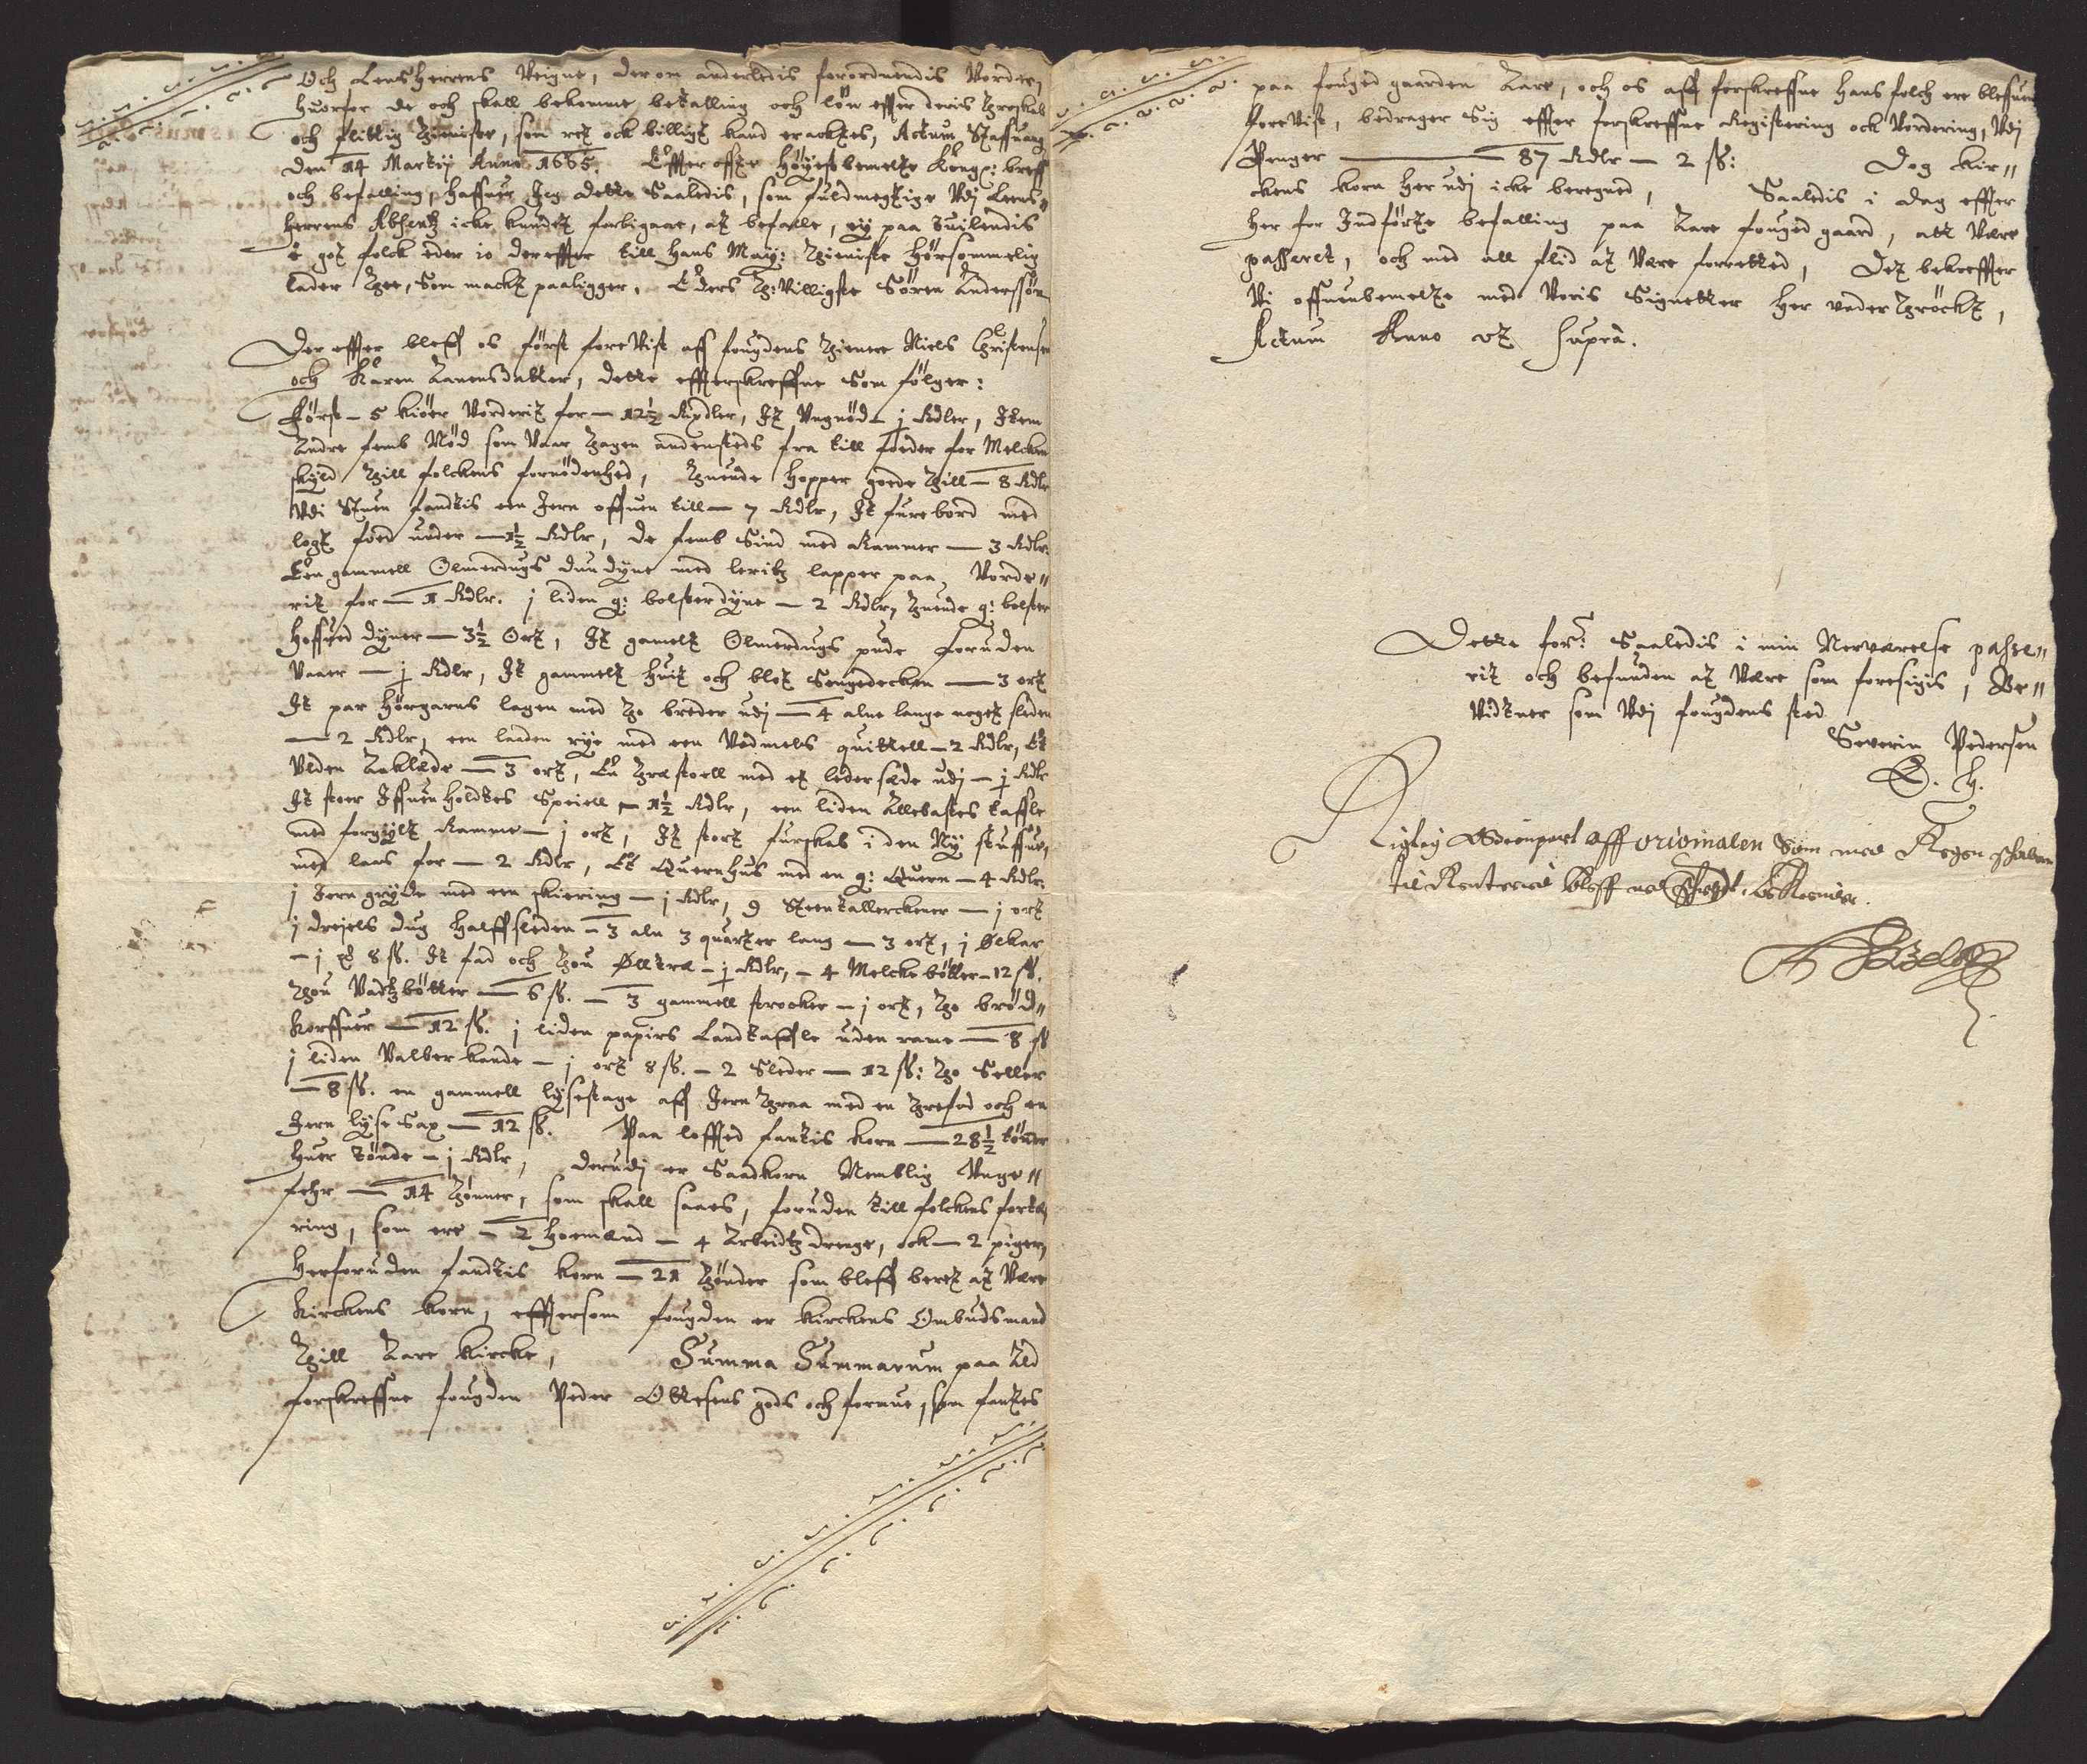 Och Lens Herrens Veigne, der om anderledis forordnendis Vorder,
huorfor de och skall bekomme betalling och lön effter deris Troskab
och flittig thieniste, som ret och billigt kand eractes, Actum Staffuang
den 14 Martij Anno 1665. Effter offte Höyestbemelte Kong: breff
och befalling, haffuer Jeg dette Saaledis, som fuldmegtige Vdj Lens„
herrens Absentz icke kundet forbigaae, at befalle, ey paa tuilendis
i got folck eder io dereffter till Hans May: thieniste Hörsommelig
lader thee, Som mackt paaligger. Eders Th: Villigste Sören Anderssøn
Der effter bleff os först foreVist aff fougdens thienere Niels Christensen
och Karen Lauensdatter, dette effterskreffne Som fölger:
Först — 5 kiöer Vorderit for — 12½ Rixdler, It Vngnöd — j Rdler, Item
Andre femb Nöd som Vaar thagen andensteds fra till foeder for Melcken
skyld thill folckens fornödenhed, thuende Hopper goede thill — 8 Rdlr
Vdi Stuen fandtis een Jern offuen till — 7 Rdlr, It furebord med
logt foed under — 1½ Rdlr, de femb Sind med Rammer — 3 Rdlr.
Een gammell Olmerdugs dundyne med leritz lapper paa, Vorde„
rit for — 1 Rdlr. j liden g: bolster dyne — 2 Rdlr, thuende g: bolster
Hoffued dyner — 3½ Ort, It gamelt Olmerdugs pude foruden
Vaaer — j Rdlr, It gammelt huit och blot Sengedecken — 3 ort
It par Hörgarns lagen med tho breder udj — 4 alne lange noget sleden
— 2 Rdlr, een laaden rye med een Vadmels quittell — 2 Rdlr, Et
Vlden Aaklæde — 3 ort, En Træstoell med et leder sæde udj — j Rdlr
It stoer Iffuenholdtes Speiell — 1½ Rdlr, een liden Allebasters taffle
med forgylt Ramme — j ort, It stort furskab i den Ny stuffue,
med laas for — 2 Rdlr, Et Quernhus med en g: Quern — 4 Rdlr.
j Jern gryde med een skiering — j Rdlr, 9 Steentallerckener — j ort
j dreyels dug halffsleden — 3 aln 3 quarter lang — 3 ort, j Ølkar
— j 8 ss. It fad och thou Ølltræ — j Rdlr, — 4 Melckebötter — 12 ss.
thou Vadtzbötter — 6 ss. — 3 gammell strocker — j ort, tho bröd„
korffuer — 12 ss. j liden papirs Landtaffle uden rame — 8 ss
j liden Valber kande — j ort 8 ss. — 2 Sleder — 12 ss: tho Seller
— 8 ss. en gammell lysestage aff Jern thraa med en Trefod och en
Jern lyse Sax — 12 ss. Paa loffted fantis korn — 28½ tönder
huer tönde — j Rdlr, derudj er Saadkorn Nemblig Vnge„
fehr — 14 thönner, som skall saaes, foruden till folckens fortæ„
ring, som ere — 2 Hoemænd — 4 Arbeidtz drenge, och — 2 piger,
Herforuden fandtis korn — 21 thönder som bleff beret at Være
kirckens korn, efftersom fougden er kirckens Ombudsmand
thill Aare kircke, Summa Summarum paa Ald
forskreffne fougden Peder Ottesens gods och formue, som fantes
paa fouged gaarden Aare, och os aff forskreffne Hans folch ere blefuen
foreVist, bedrager Sig effter forskreffne Registering och Vordering, Vdj
Penger — 87 Rdlr — 2 ss: Dog kir„
ckens korn her udj icke beregned, Saaledis i dag effter
her for Indförte befalling paa Aare fouged gaard, att Være
passeret, och med all flid at Være forretted, Det bekreffter
Vi offuenbemelte med Voris Signetter her under thröckt,
Actum Anno vt supra.
Dette for: Saaledis i min Nerværelse passe„
rit och befunden at Være som foresigis, Be„
Vidtner som Vdj fougdens sted
Severin Pedersen
E. H.
Rigtig Gienpart aff originalen Som med Regenschaben